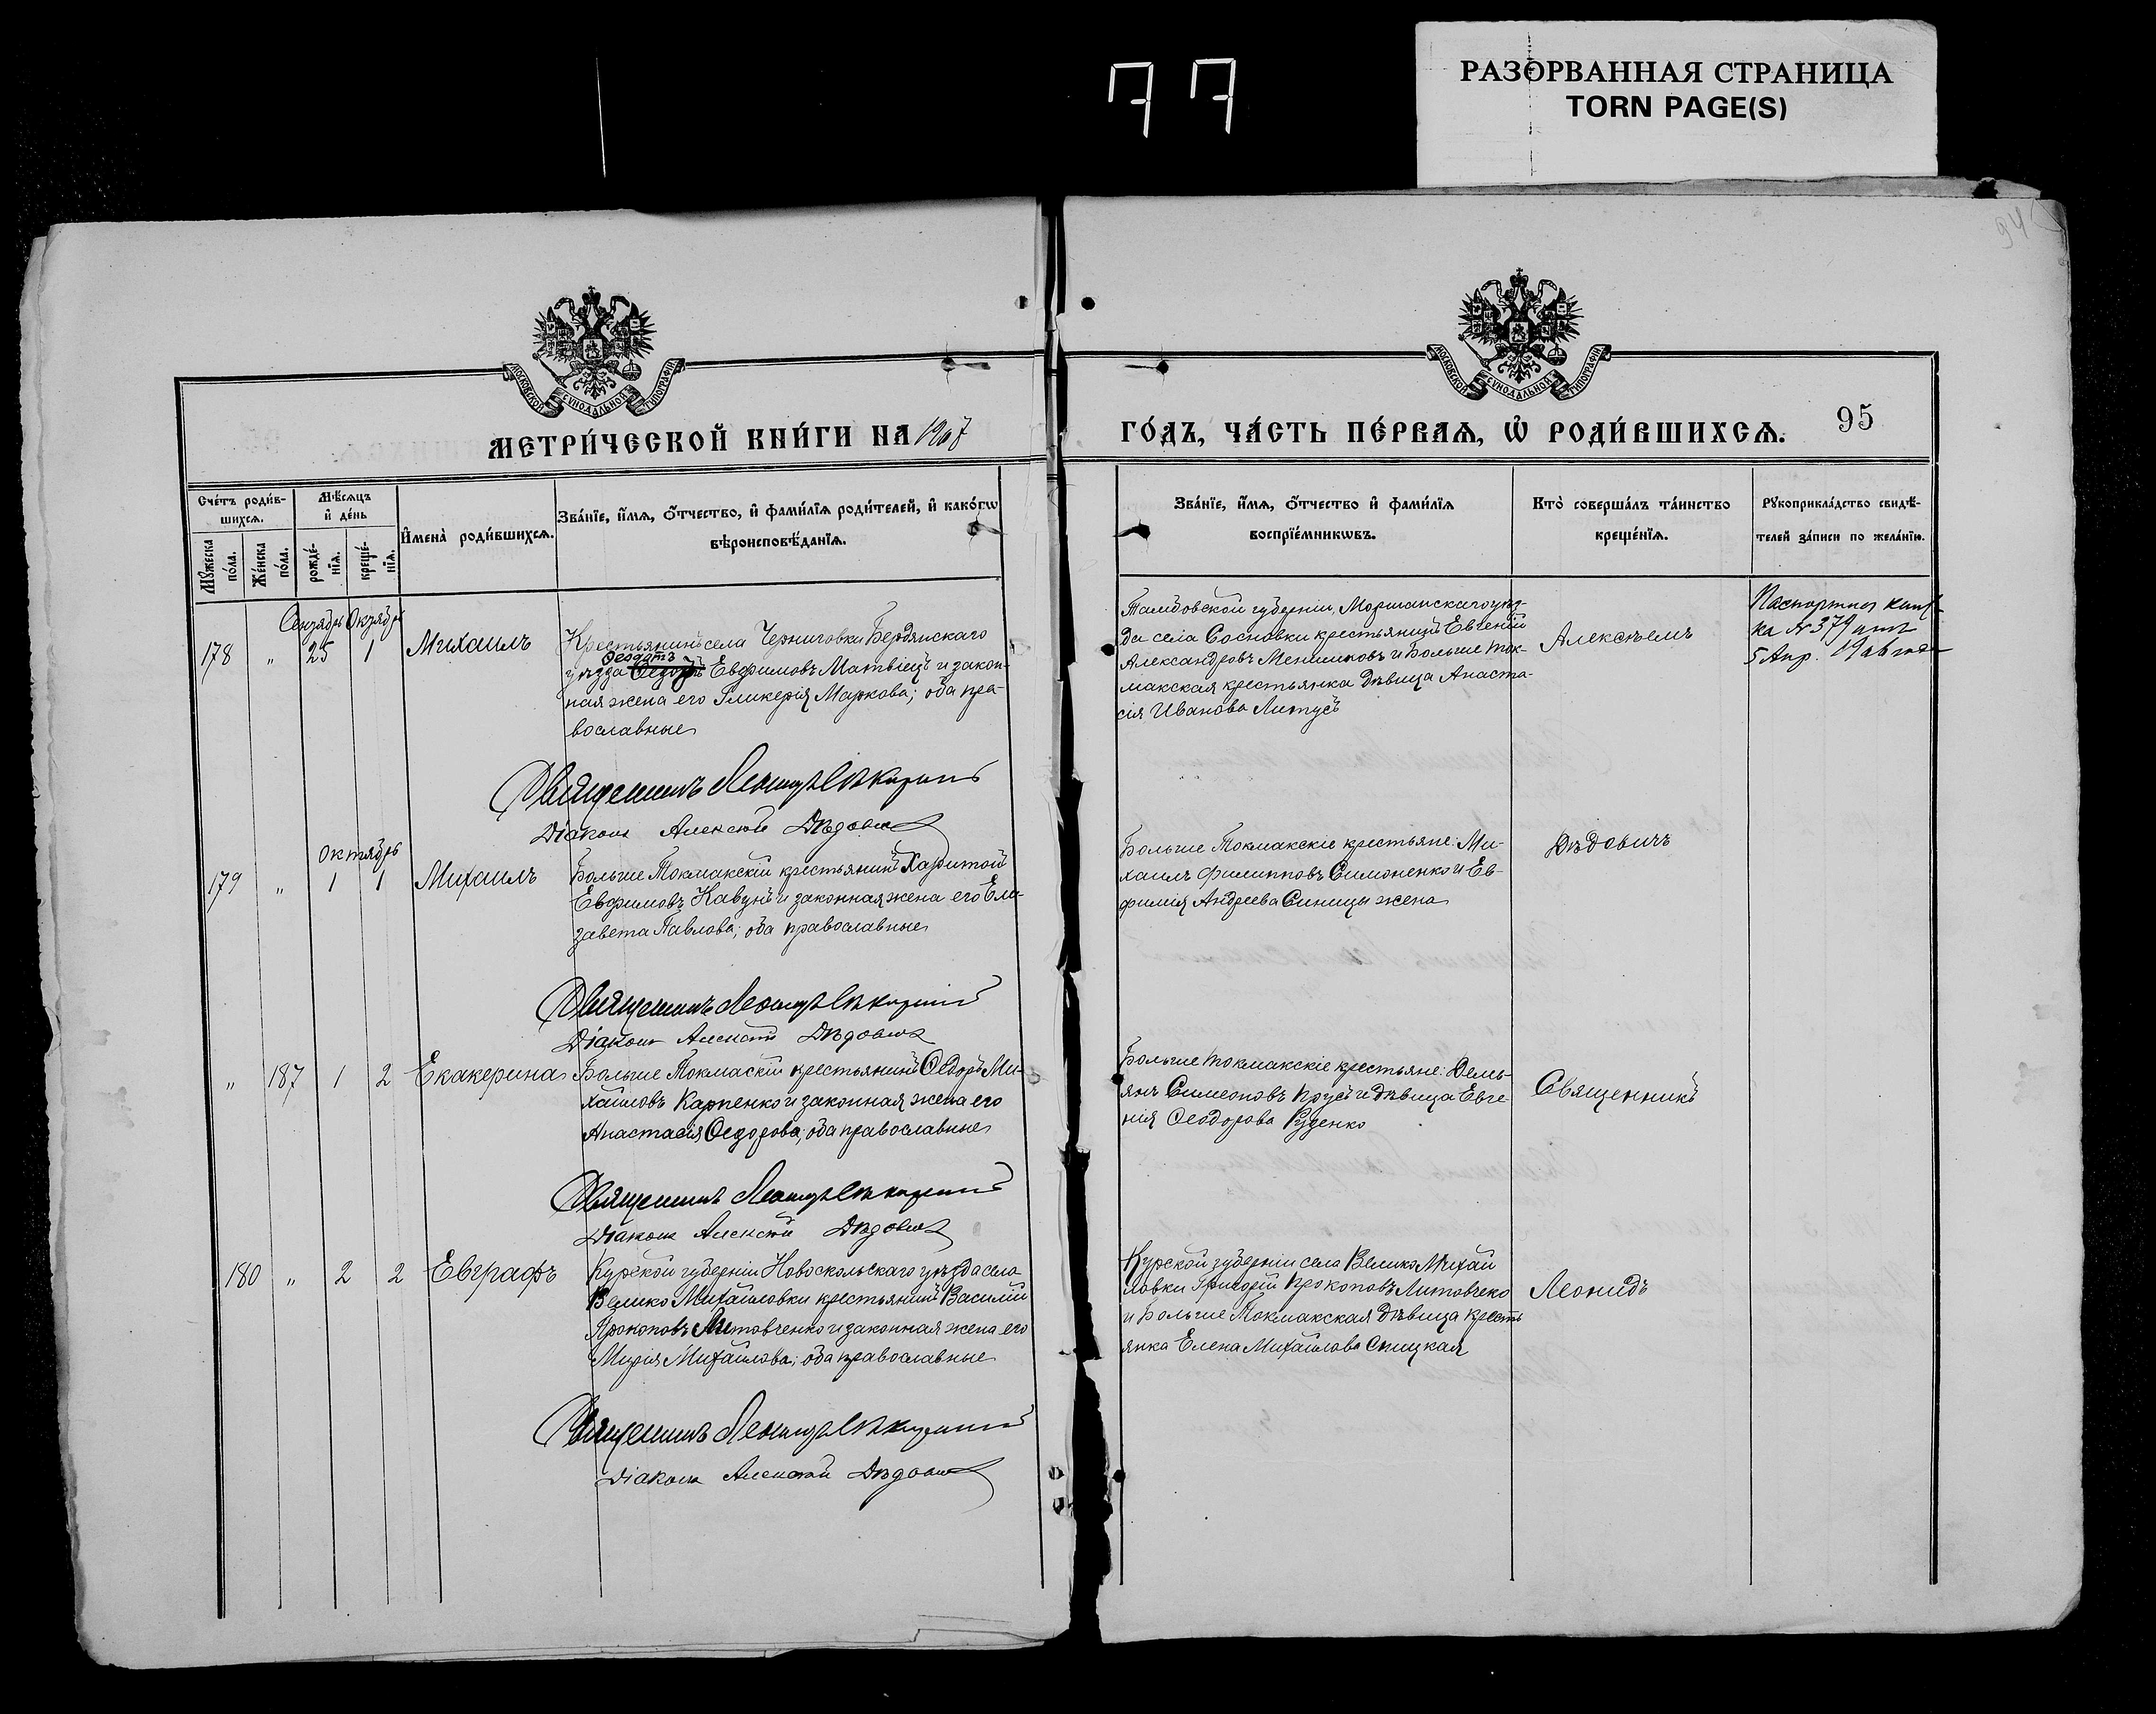 77
РАЗОРВАННАЯ СТРАНИЦА
TORN PAGE(S)
94
МОСКОВСКОЙ СѴНОДАЛЬНОЙ ТИПОГРАФІИ
МОСКОВСКОЙ СѴНОДАЛЬНОЙ ТИПОГРАФІИ
МЕТРИ́ЧЕСКОЙ КНИ́ГИ НА 1907
ГО́ДЪ, ЧА́СТЬ ПЕ́РВАѦ, Ѽ РОДИ́ВШИХСѦ. 95
Сче́тъ роди́в-
шихсѧ.
Мꙋ́жеска по́ла.
Же́нска по́ла.
Мѣ́сѧцъ
и҆ де́нь
рожде́-
нїѧ.
креще́-
нїѧ.
И҆мена̀ роди́вшихсѧ.
Зва́нїе, и҆́мѧ, ѻ҆́тчество, и҆ фами́лїѧ роди́телей, и҆ како́гѡ
вѣроисповѣ́данїѧ.
Зва́нїе, и҆́мѧ, ѻ҆́тчество и҆ фами́лїѧ
воспрїе́мникѡвъ.
Кто̀ соверша́лъ та́инство
креще́нїѧ.
Рꙋкоприкла́дство свидѣ́-
телей за́писи по жела́нїю.
Сентябрь Октябрь
178 „ 25 1 Михаилъ
Крестьянинъ села Черниговки Бердянскаго
Ѳеодотъ
уѣзда Евфимовъ Матвіецъ и закон-
ная жена его Гликерія Маркова; оба пра-
вославные
Тамбовской губерніи, Моршанскаго уѣз-
да села Сосновки крестьянинъ Евгеній
Александровъ Меншиковъ и Больше Ток-
макская крестьянка дѣвица Анаста-
сія Иванова Литусъ
Алексѣемъ
Паспортная книж-
ка № 379 отъ
5 Апр. 1906 года
Священникъ Леонидъ
Діаконъ Алексѣй Дѣдовичъ
Октябрь
179 „ 1 1 Михаилъ
Больше Токмакскій крестьянинъ Харитонъ
Евфимовъ Кавунъ и законная жена его Ели-
завета Павлова; оба православные
Больше Токмакскіе крестьяне: Ми-
хаилъ Филипповъ Симоненко и Ев-
фимія Андреева Синицы жена
Дѣдовичъ
Священникъ Леонидъ
Діаконъ Алексѣй Дѣдовичъ
„ 187 1 2 Екакерина
Больше Токмаскій крестьянинъ Ѳедоръ Ми-
хаиловъ Карпенко и законная жена его
Анастасія Ѳедорова; оба православные
Больше Токмакскіе крестьяне: Демь-
янъ Симеоновъ Прусъ и дѣвица Евге-
нія Ѳеодорова Руденко
Священникъ
Священникъ Леонидъ
Діаконъ Алексѣй Дѣдовичъ
180 „ 2 2 Евграфъ
Курской губерніи Новоскольскаго уѣзда села
Велико Михайловки крестьянинъ Василій
Прокоповъ Литовченко и законная жена его
Марія Михайлова; оба православные
Курской губерніи села Велико Михай
ловки Григорій Прокоповъ Литовчеко
и Больше Токмакская дѣвица кресть
янка Елена Михайлова Спицкая
Леонидъ
Священникъ Леонидъ
Діаконъ Алексѣй Дѣдовичъ